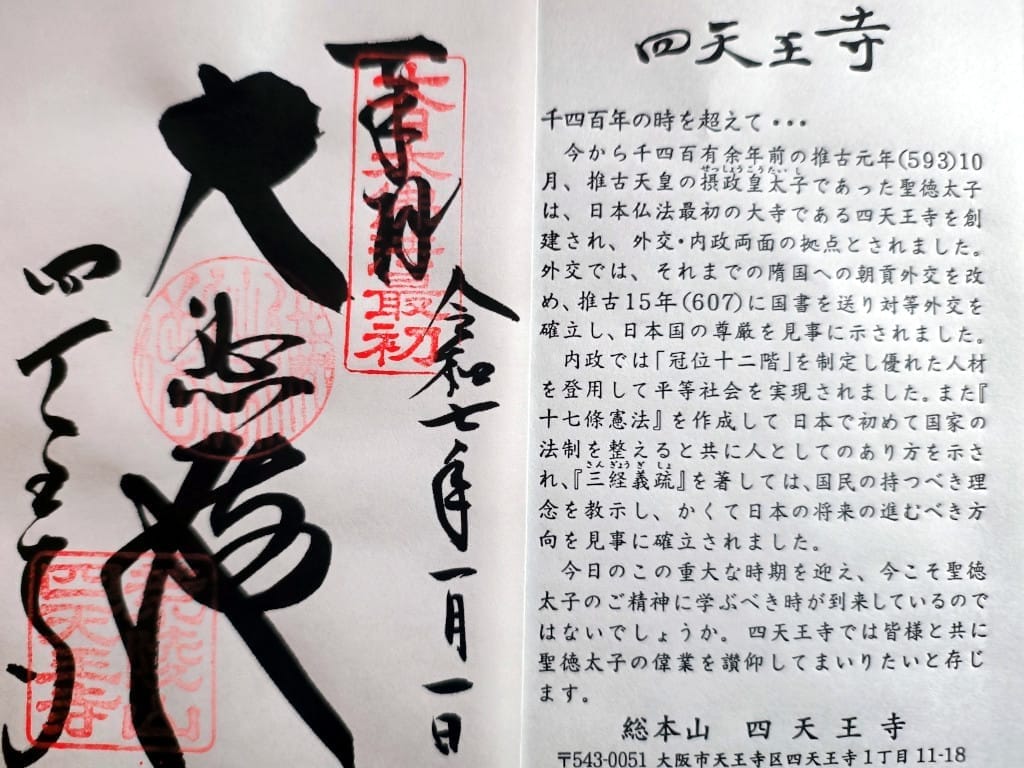 奉拝
大日本佛法最初
令和七年一月一日
大悲殿
四天王寺
荒陵山
四天王寺
四天王寺
千四百年の時を超えて・・・
今から千四百有余年前の推古元年(593)10
せっしょうこうたいし
月、推古天皇の摂政皇太子であった聖徳太子
は、日本仏法最初の大寺である四天王寺を創
建され、外交・内政両面の拠点とされました。
外交では、それまでの隋国への朝貢外交を改
め、推古15年(607)に国書を送り対等外交を
確立し、日本国の尊厳を見事に示されました。
内政では「冠位十二階」を制定し優れた人材
を登用して平等社会を実現されました。また『
十七條憲法』を作成して 日本で初めて国家の
法制を整えると共に人としてのあり方を示さ
さんぎょうぎしょ
れ、『三経義疏』を著しては、国民の持つべき理
念を教示し、かくて日本の将来の進むべき方
向を見事に確立されました。
今日のこの重大な時期を迎え、今こそ聖徳
太子のご精神に学ぶべき時が到来しているので
はないでしょうか。四天王寺では皆様と共に
聖徳太子の偉業を讃仰してまいりたいと存じ
ます。
総本山 四天王寺
〒543-0051 大阪市天王寺区四天王寺1丁目11-18